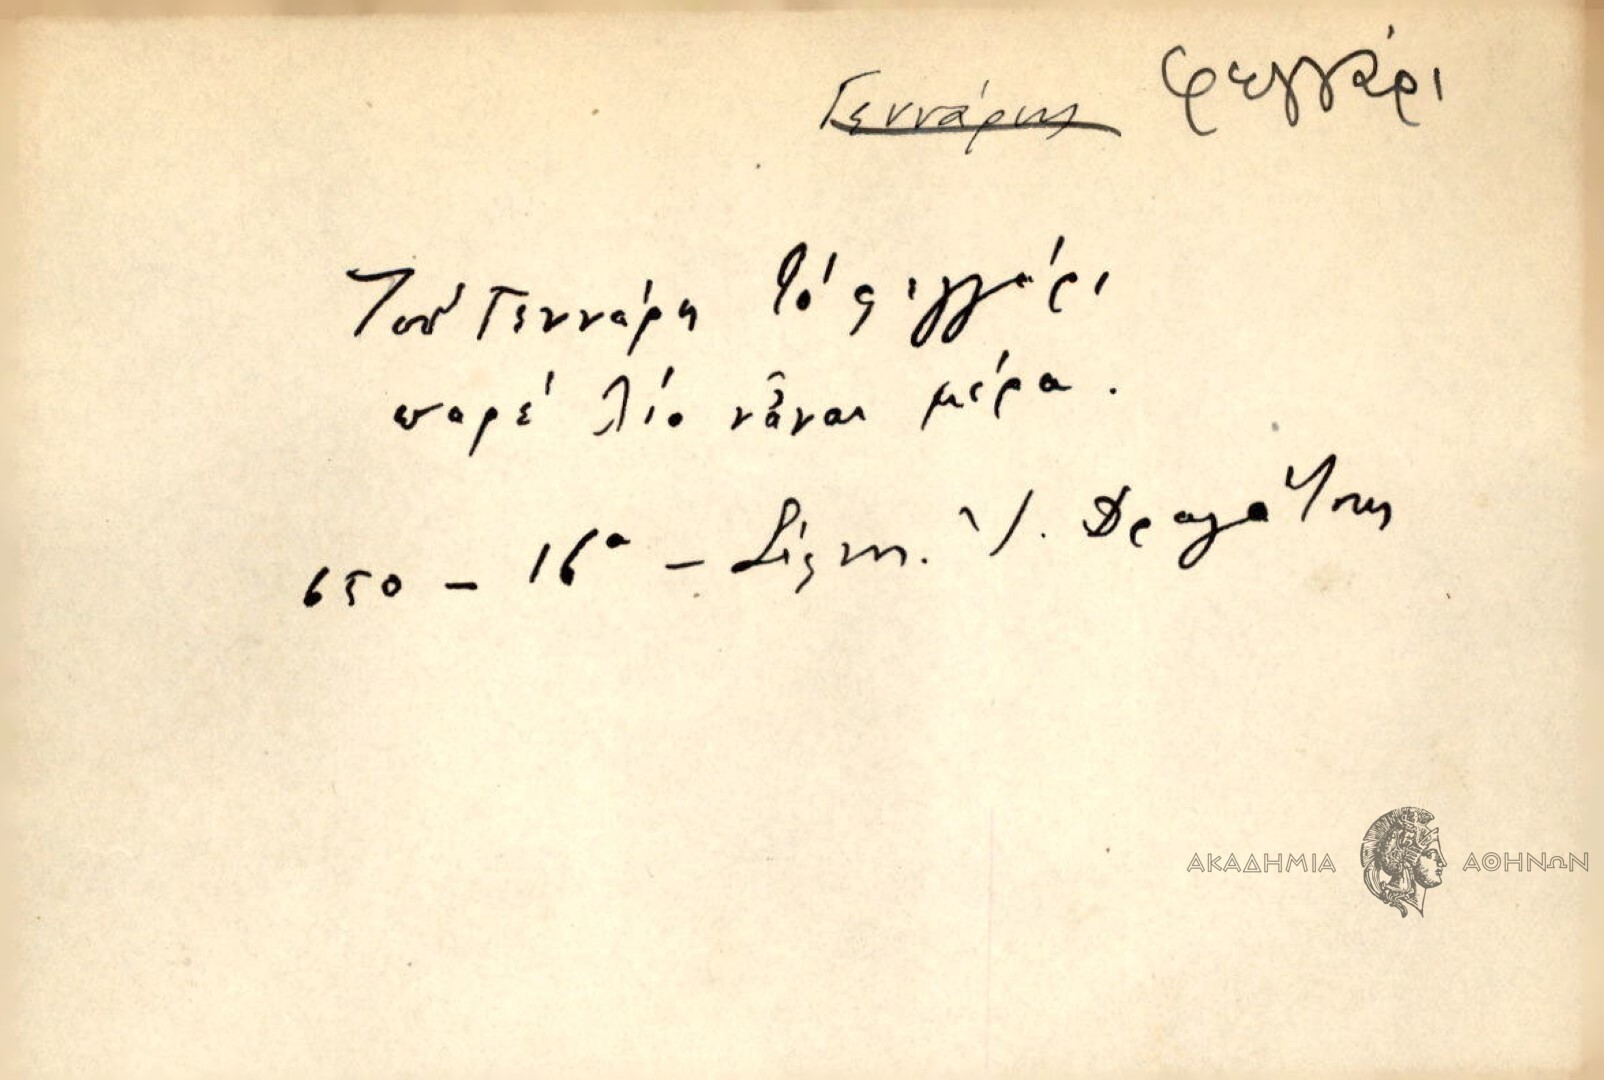 Γεννάρης φεγγάρι
Τοῦ Γεννάρη τό φιγγάρι
παρέ λίο νἆναι μέρα.
650 - 16α - Σίφν. Ἰ. Δραγάτσης
ΑΚΑΔΗΜΙΑ ΑΘΗΝΩΝ